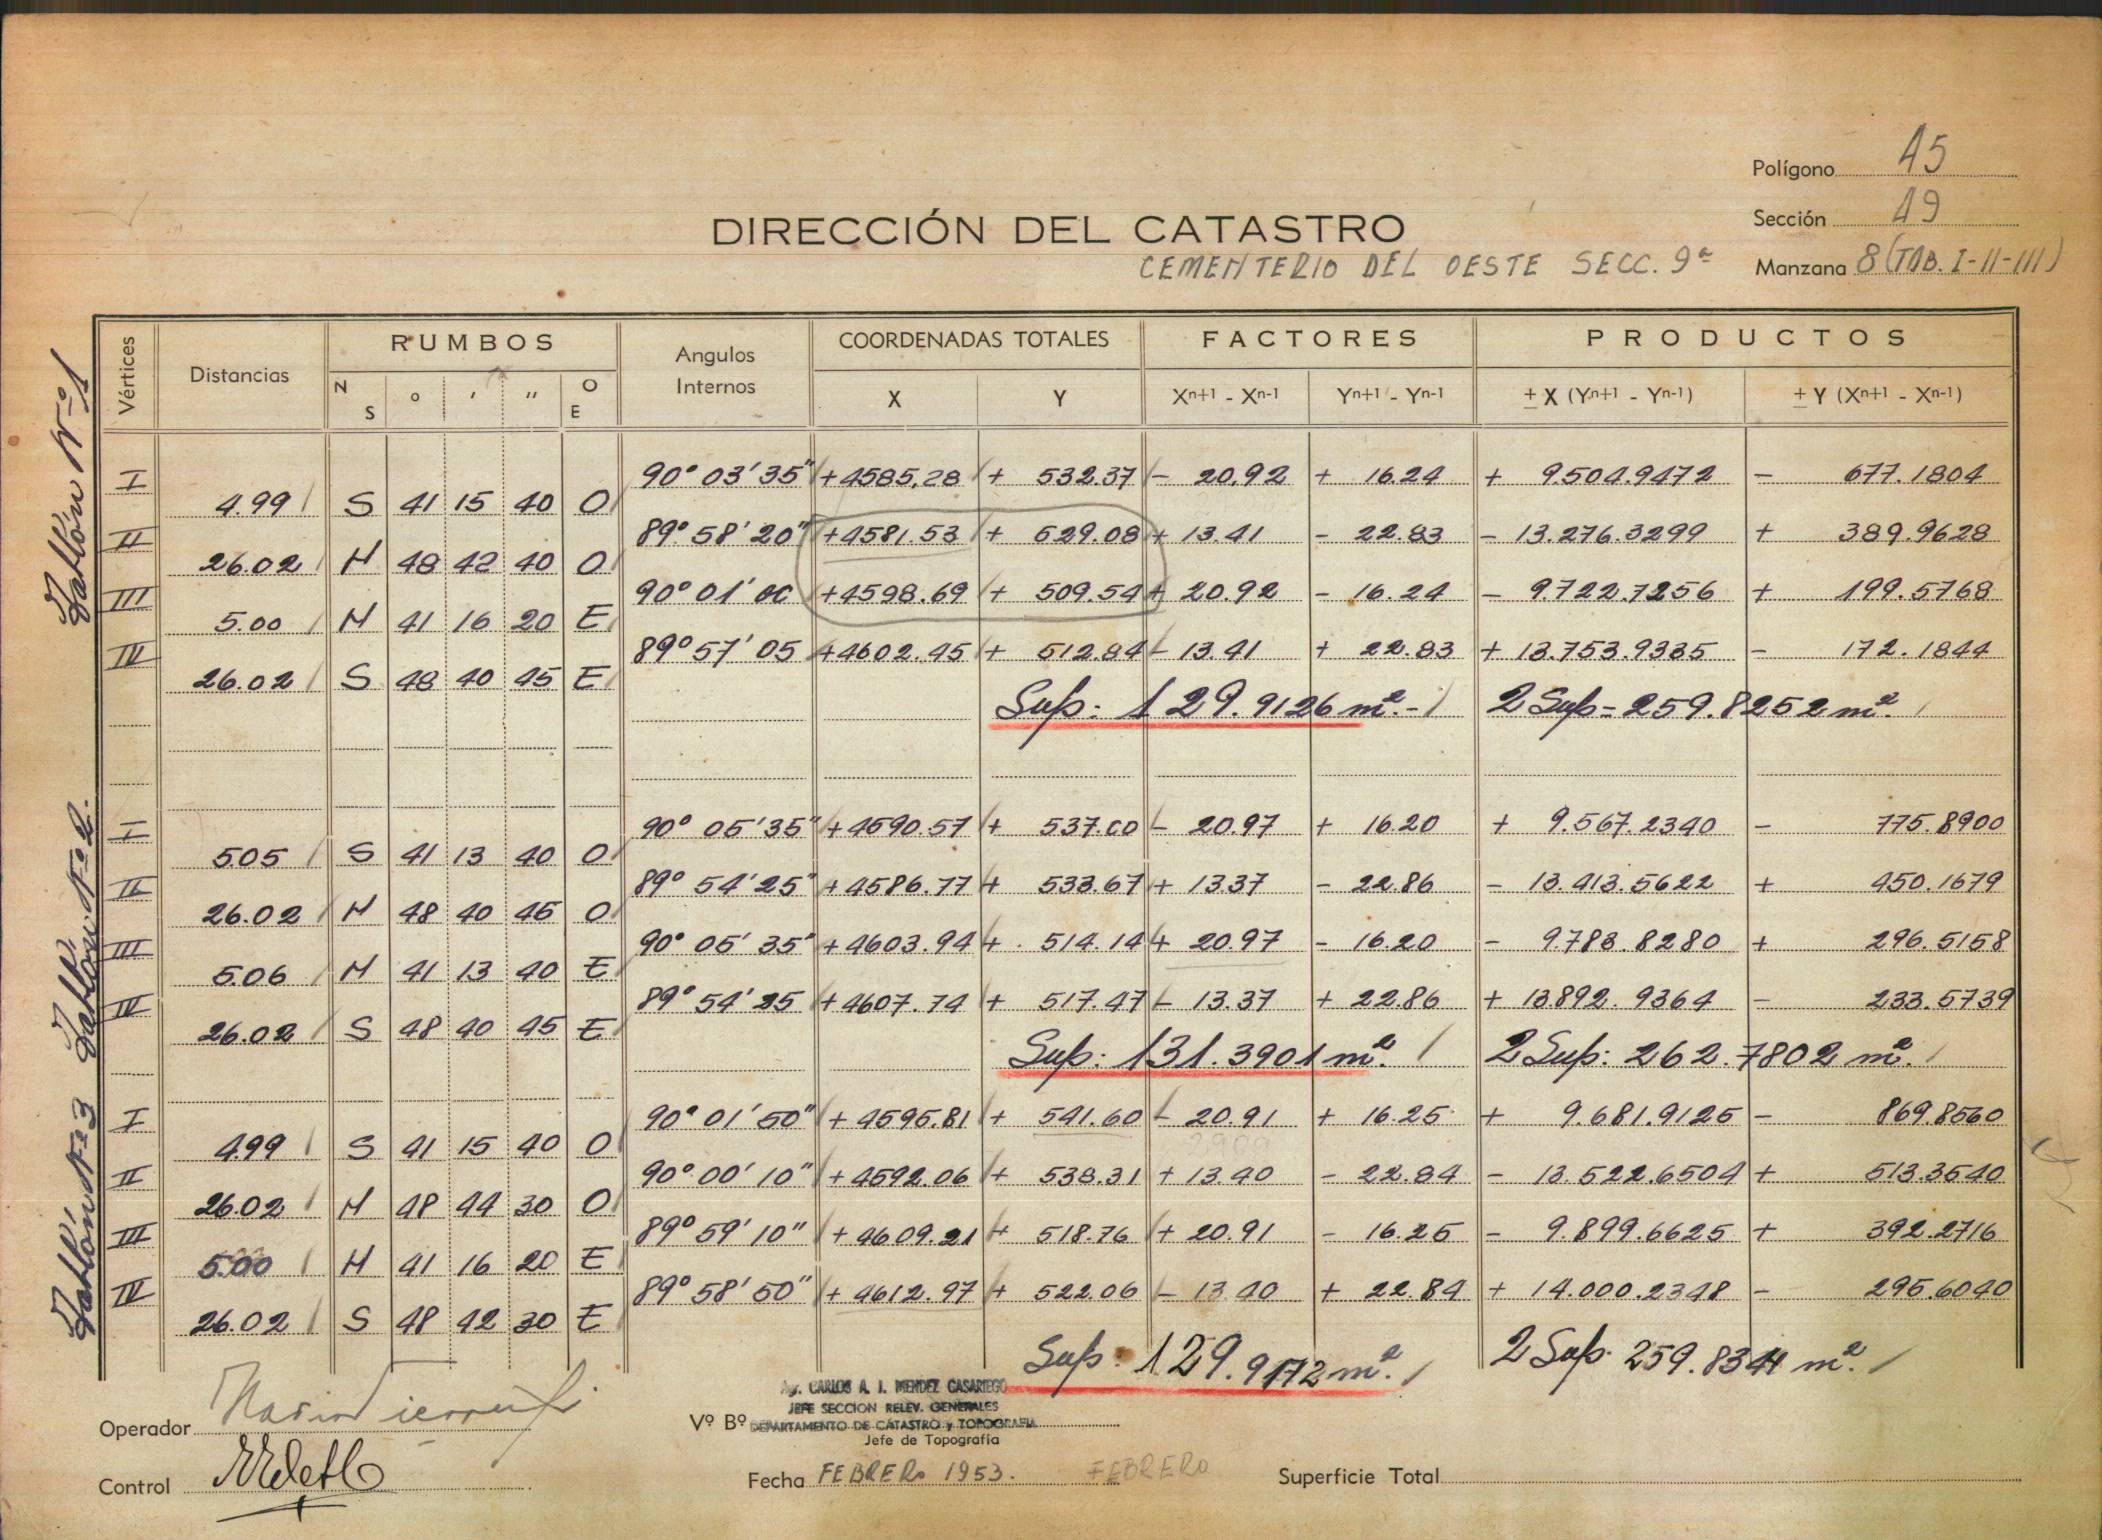 Polígono 15
Sección 19
DIRECCIÓN DEL CATASTRO
CEMENTERIO DEL OESTE SECC. 9ª Manzana 8 (TAB. I-II-III)
Vértices Distancias RUMBOS Angulos Internos COORDENADAS TOTALES FACTORES PRODUCTOS
N S ° ' " O E X Y Xn+1 - Xn-1 Yn+1 - Yn-1 ± X (Yn+1 - Yn-1) ± Y (Xn+1 - Xn-1)
Tablón Nº 1
I 90° 03' 35" +4585.28 + 532.37 - 20.92 + 16.24 + 9.504.9472 - 677.1804
4.99 S 41 15 40 O
II 89° 58' 20" +4581.53 + 529.08 + 13.41 - 22.83 - 13.276.3299 + 389.9628
26.02 N 48 42 40 O
III 90° 01' 00 +4598.69 + 509.54 + 20.92 - 16.24 - 9.722.7256 + 199.5768
5.00 N 41 16 20 E
IV 89° 57' 05 +4602.45 + 512.84 - 13.41 + 22.83 + 13.753.9335 - 172.1844
26.02 S 48 40 45 E
Sup: 129.9126 m². 2 Sup = 259.8252 m².
Tablón Nº 2.
I 90° 05' 35" +4590.57 + 537.00 - 20.97 + 16.20 + 9.567.2340 - 775.8900
5.05 S 41 13 40 O
II 89° 54' 25" +4586.77 + 533.67 + 13.37 - 22.86 - 13.413.5622 + 450.1679
26.02 N 48 40 45 O
III 90° 05' 35" +4603.94 + 514.14 + 20.97 - 16.20 - 9.783.8280 + 296.5158
5.06 N 41 13 40 E
IV 89° 54' 25 +4607.74 + 517.47 - 13.37 + 22.86 + 13.892.9364 - 233.5739
26.02 S 48 40 45 E
Sup: 131.3901 m². 2 Sup: 262.7802 m².
Tablón Nº 3
I 90° 01' 50" + 4595.81 + 541.60 - 20.91 + 16.25 + 9.681.9125 - 869.8560
4.99 S 41 15 40 O
II 90° 00' 10" + 4592.06 + 538.31 + 13.40 - 22.84 - 13.522.6504 + 513.3540
26.02 N 48 44 30 O
III 89° 59' 10" + 4609.21 + 518.76 + 20.91 - 16.25 - 9.899.6625 + 392.2716
5.00 N 41 16 20 E
IV 89° 58' 50" + 4612.97 + 522.06 - 13.40 + 22.84 + 14.000.2348 - 295.6040
26.02 S 48 42 30 E
Sup: 129.9172 m². 2 Sup. 259.8344 m².
Ag. CARLOS A. I. MENDEZ CASARIEGO
JEFE SECCION RELEV. GENERALES
Operador Vº Bº DEPARTAMENTO DE CATASTRO y TOPOGRAFIA
Jefe de Topografía
Control Fecha FEBRERO 1953. FEBRERO Superficie Total